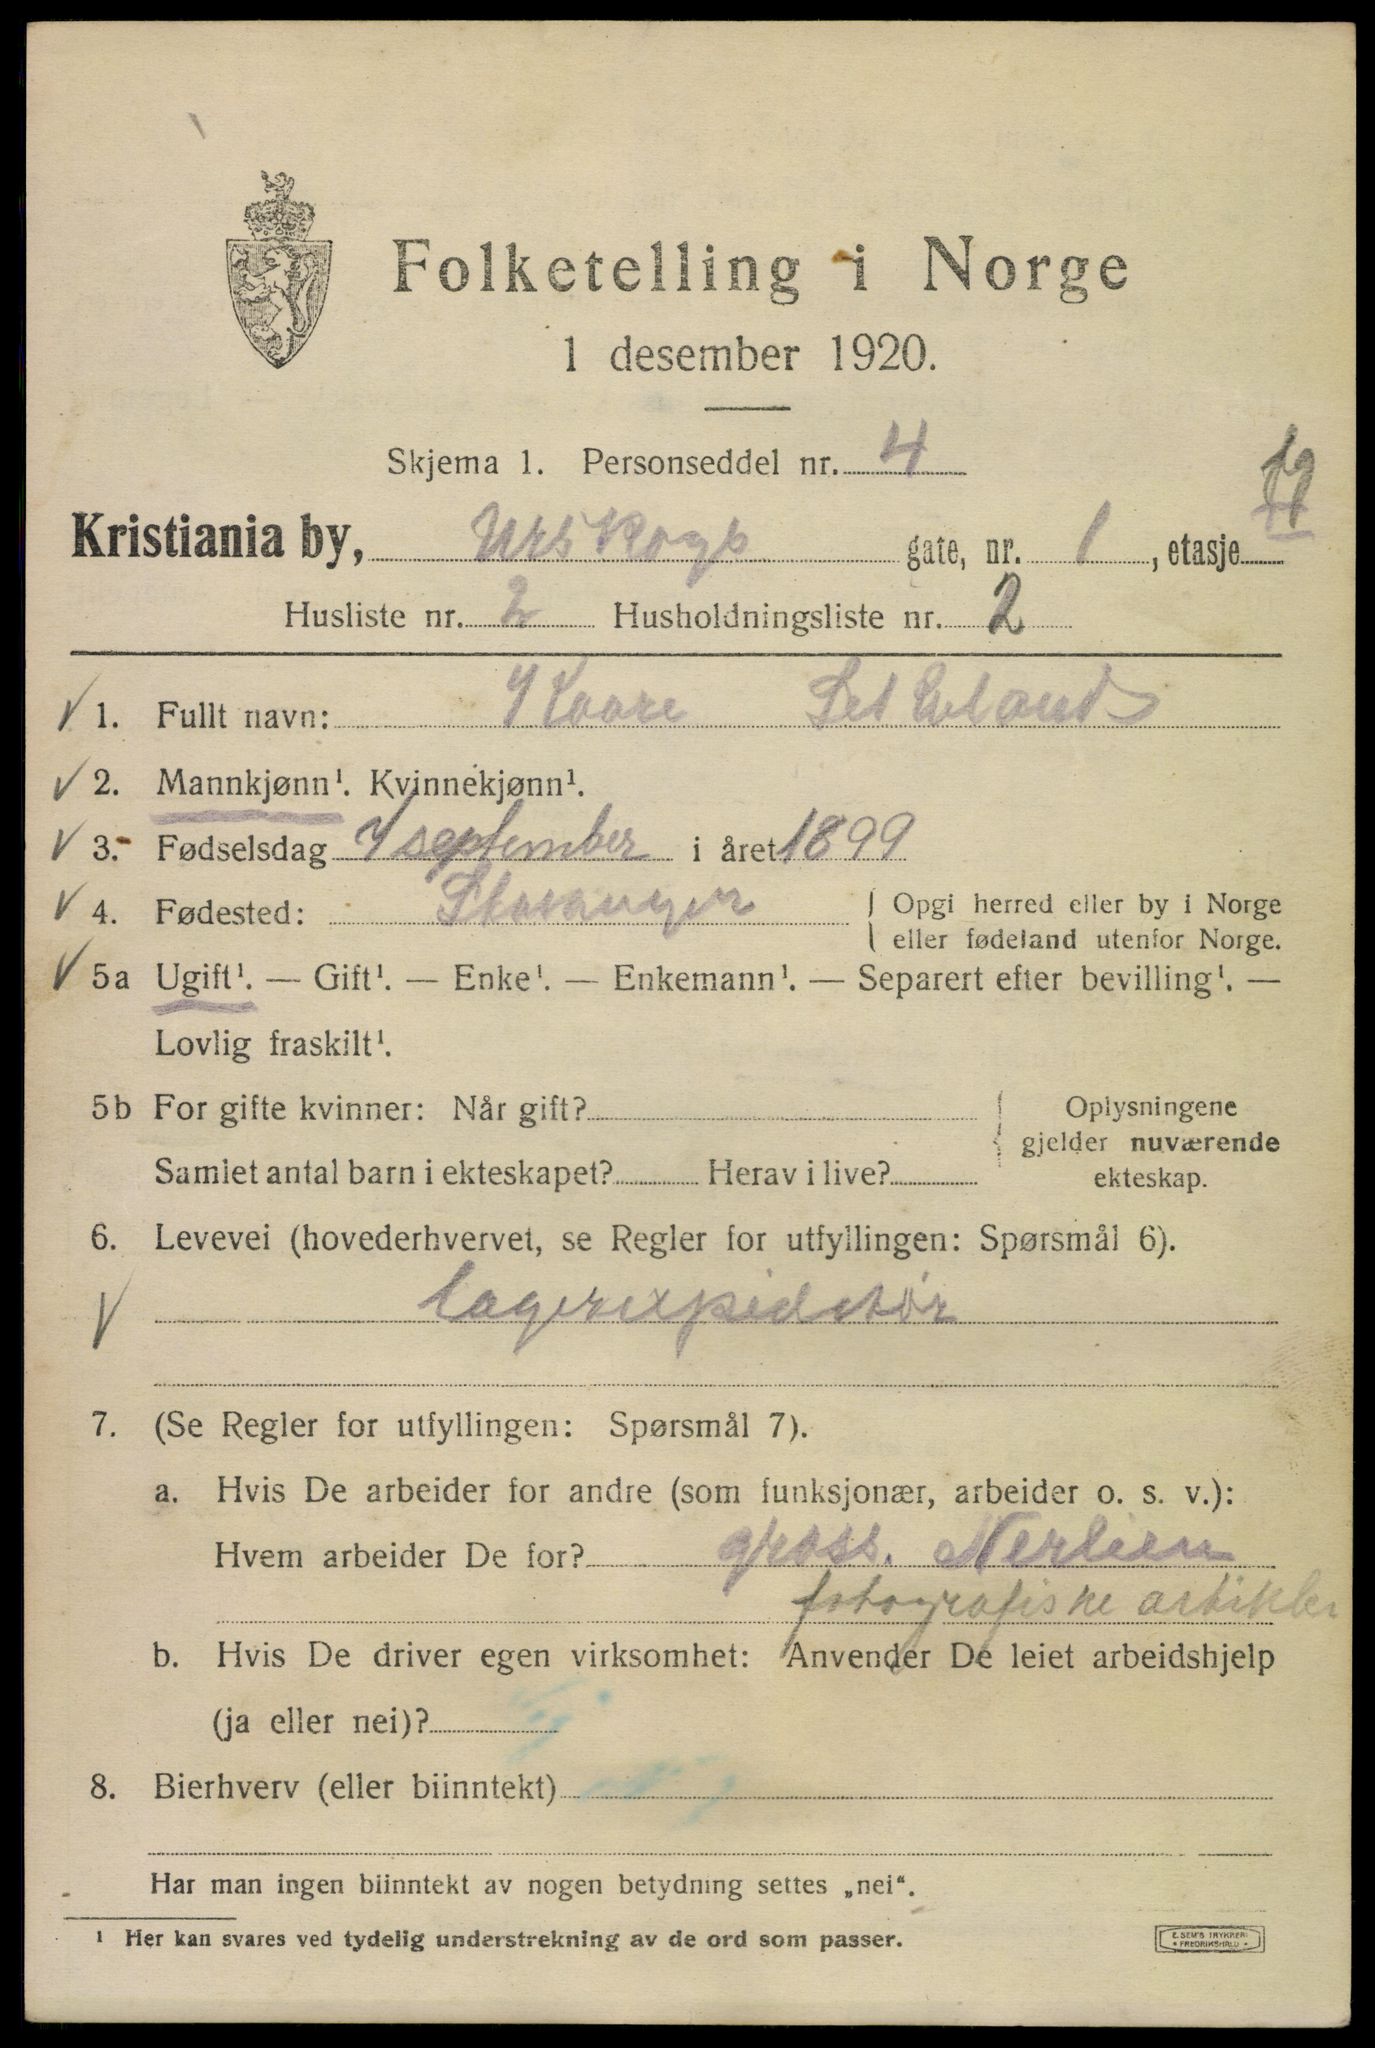 Folketelling i Norge
1 desember 1920.
Skjema 1. Personseddel nr. 4
Kristiania by, Urskogs gate, nr. 1, etasje
Husliste nr. 2 Husholdningsliste nr. 2
1. Fullt navn: Kaare
2. Mannkjønn¹. Kvinnekjønn¹.
3. Fødselsdag 7 september i året 1899
4. Fødested: Stavanger { Opgi herred eller by i Norge
eller fødeland utenfor Norge.
5a Ugift¹. — Gift¹. — Enke¹. — Enkemann¹. — Separert efter bevilling¹. —
Lovlig fraskilt¹.
5b For gifte kvinner: Når gift? { Oplysningene
gjelder nuværende
Samlet antal barn i ekteskapet? Herav i live? ekteskap.
6. Levevei (hovederhvervet, se Regler for utfyllingen: Spørsmål 6).
Lagerexpiditør
7. (Se Regler for utfyllingen: Spørsmål 7).
a. Hvis De arbeider for andre (som funksjonær, arbeider o. s. v.):
Hvem arbeider De for? gross. Nerlien
fotografiske artikler
b. Hvis De driver egen virksomhet: Anvender De leiet arbeidshjelp
(ja eller nei)?
8. Bierhverv (eller biinntekt) Nei
Har man ingen biinntekt av nogen betydning settes „nei“.
¹ Her kan svares ved tydelig understrekning av de ord som passer.
E. SEM'S TRYKKERI
• FREDRIKSHALD •